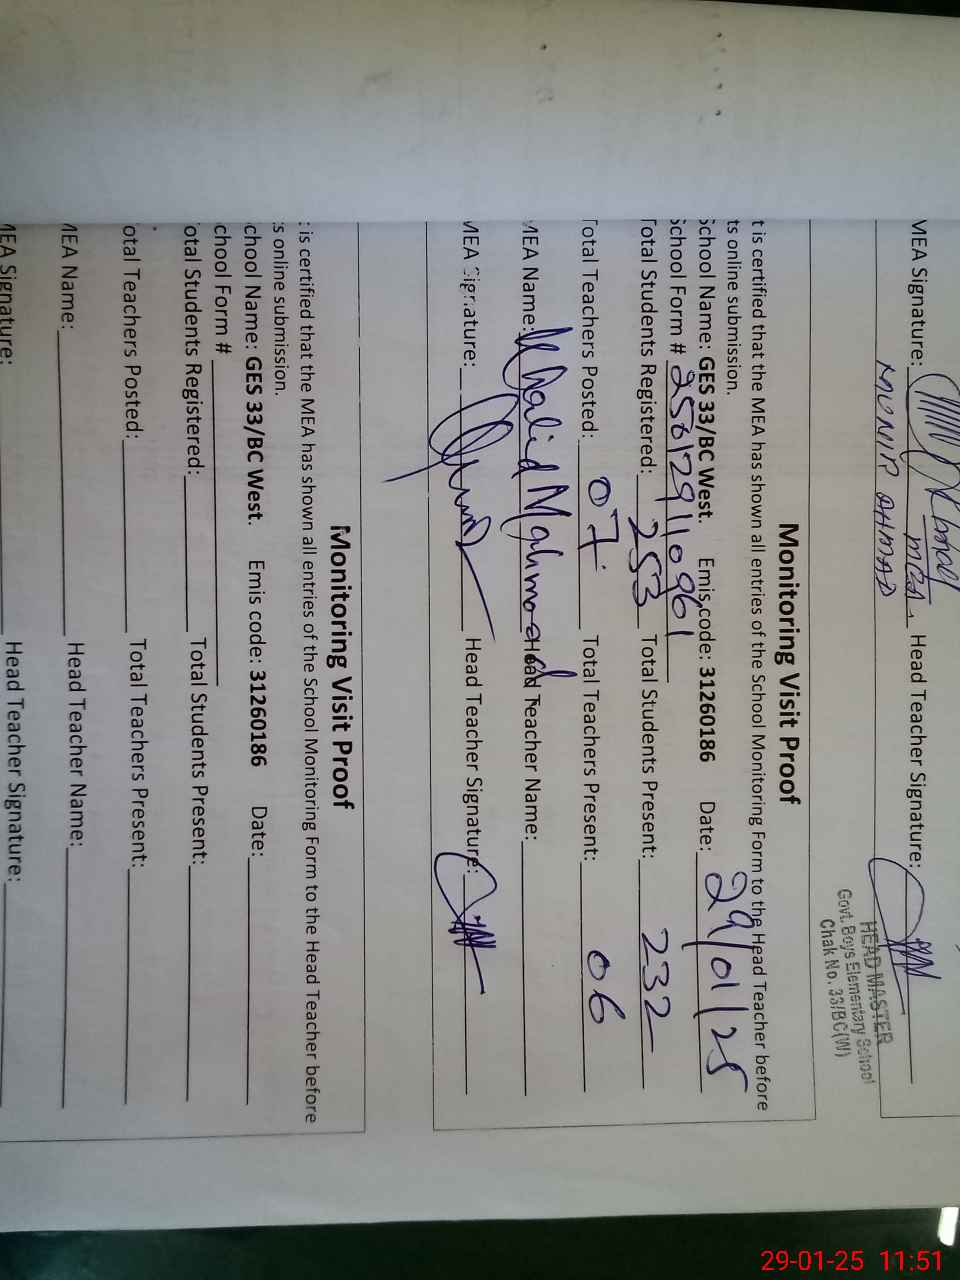 MEA Signature: MEA, Head Teacher Signature:
MUNIR AHMAD
HEAD MASTER
Govt. Boys Elementary School
Chak No. 33/BC(W)
Monitoring Visit Proof
t is certified that the MEA has shown all entries of the School Monitoring Form to the Head Teacher before
ts online submission.
School Name: GES 33/BC West. Emis code: 31260186 Date: 29/01/25
School Form #
Total Students Registered: 253 Total Students Present: 232
Total Teachers Posted: 07 Total Teachers Present: 06
MEA Name: Khalid Mahmood Head Teacher Name:
MEA Signature: Head Teacher Signature:
Monitoring Visit Proof
t is certified that the MEA has shown all entries of the School Monitoring Form to the Head Teacher before
s online submission.
chool Name: GES 33/BC West. Emis code: 31260186 Date:
chool Form #
otal Students Registered: Total Students Present:
otal Teachers Posted: Total Teachers Present:
MEA Name: Head Teacher Name:
MEA Signature: Head Teacher Signature:
29-01-25 11:51